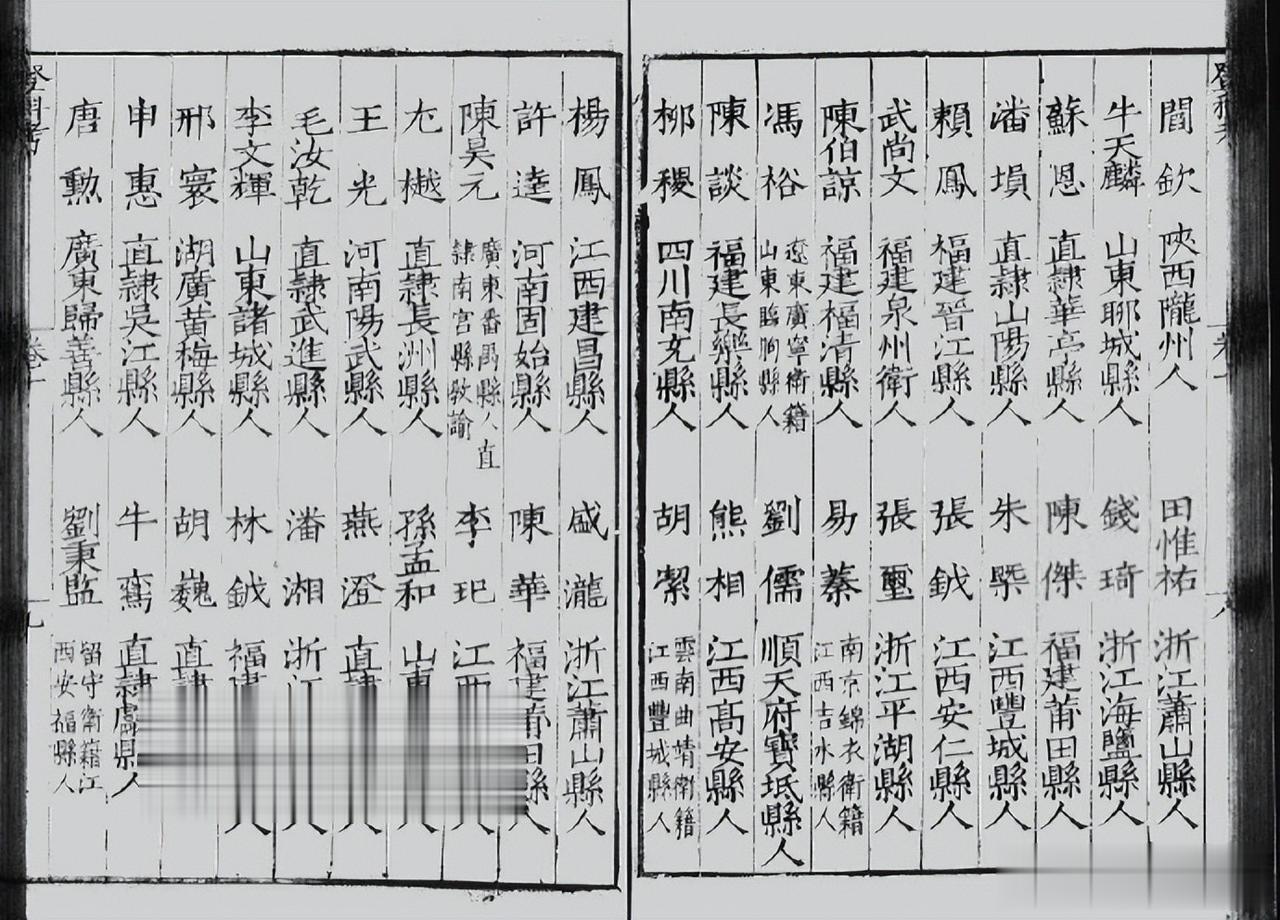 閻欽 陝西隴州人 田惟祐 浙江蕭山縣人
牛天麟 山東聊城縣人 錢琦 浙江海鹽縣人
蘇恩 直隸華亭縣人 陳傑 福建莆田縣人
潘塤 直隸山陽縣人 朱㮣 江西豐城縣人
賴鳳 福建晉江縣人 張鉞 江西安仁縣人
武尚文 福建泉州衛人 張璽 浙江平湖縣人
陳伯諒 福建福清縣人 易蓁 南京錦衣衛籍江西吉水縣人
馮裕 遼東廣寧衛籍山東臨朐縣人 劉儒 順天府寶坻縣人
陳談 福建長樂縣人 熊相 江西高安縣人
柳稷 四川南充縣人 胡潔 雲南曲靖衛籍江西豐城縣人
楊鳳 江西建昌縣人 盛瀧 浙江蕭山縣人
許逵 河南固始縣人 陳華 福建莆田縣人
陳昊元 廣東番禺縣人直隸南宮縣教諭 李玘 江西
尤樾 直隸長洲縣人 孫孟和 山東 人
王光 河南陽武縣人 燕澄 直隸 人
毛汝乾 直隸武進縣人 潘湘 浙江 人
李文輝 山東諸城縣人 林鉞 福建 人
邢寰 湖廣黄梅縣人 胡巍 直隸
申惠 直隸吳江縣人 牛鸞 直隸 縣人
唐勳 廣東歸善縣人 劉秉監 留守衛籍江西安福縣人
登科考 卷十 九